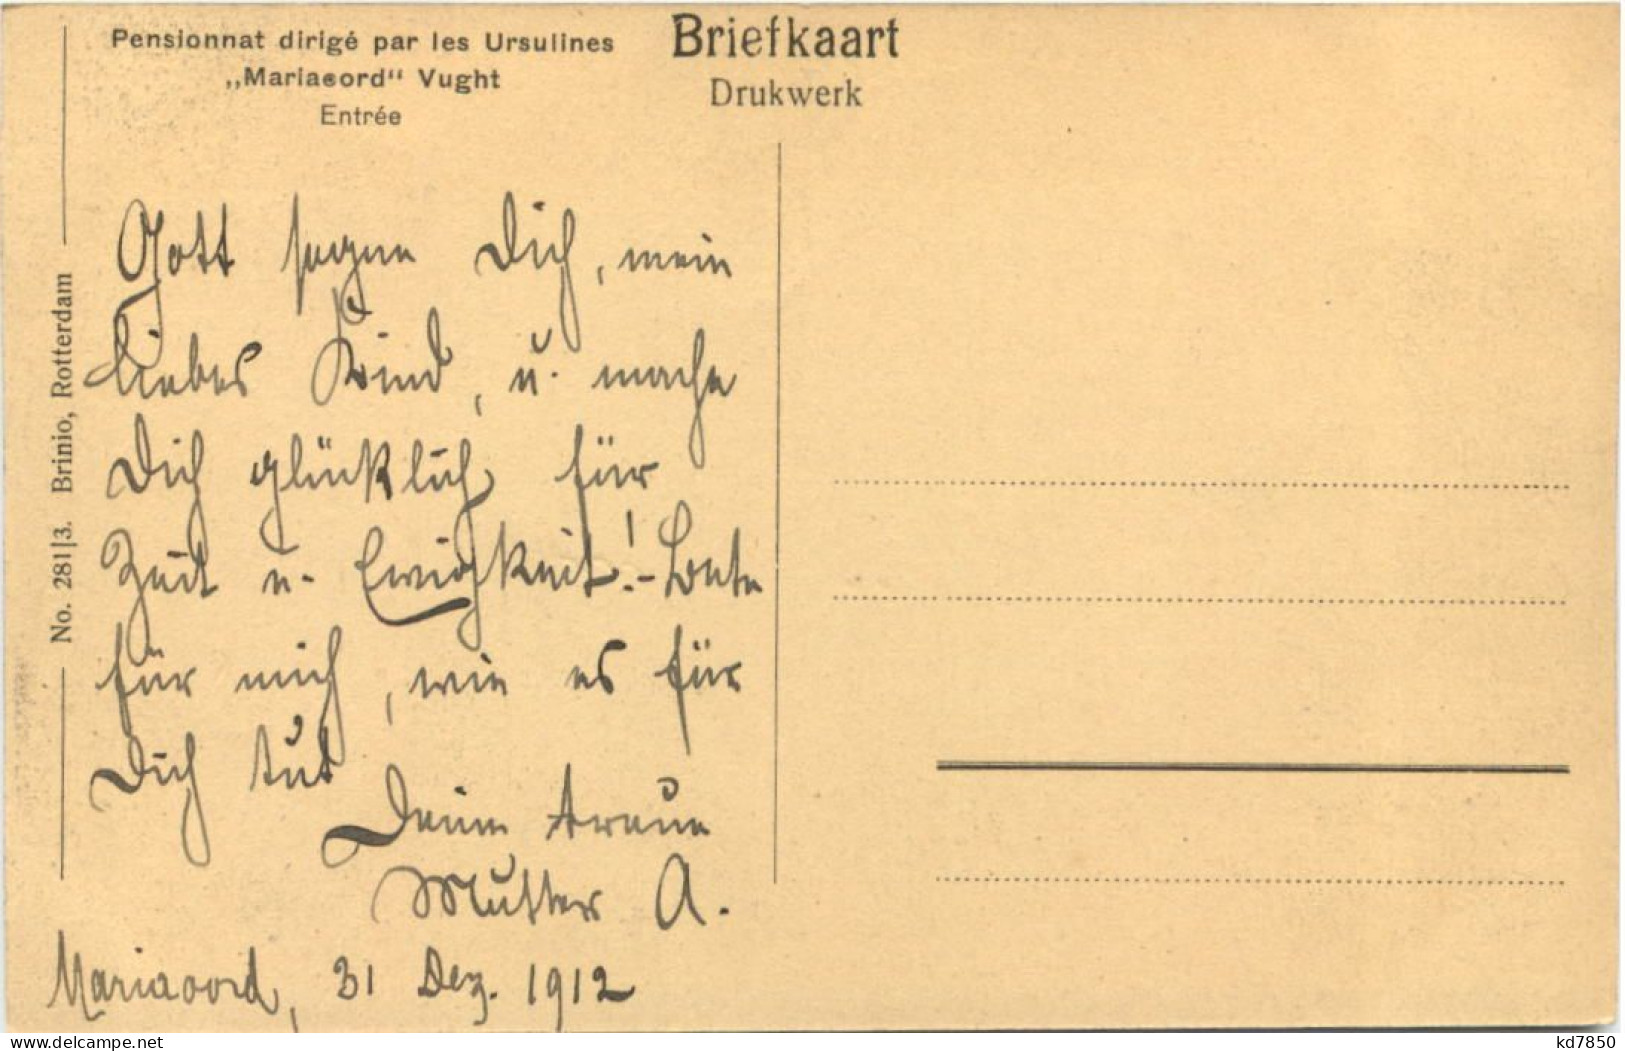 Pensionnat dirigé par les Ursulines
„Mariaoord“ Vught
Entrée
Briefkaart
Drukwerk
No. 281|3. Brinio, Rotterdam
Gott segne Dich, mein
liebes Kind, u. mache
Dich glücklich für
Zeit u. Ewigkeit! - Bete
für mich, wie es für
Dich tut
Deine treue
Mutter A.
Mariaoord, 31 Dez. 1912
delcampe.net
kd7850